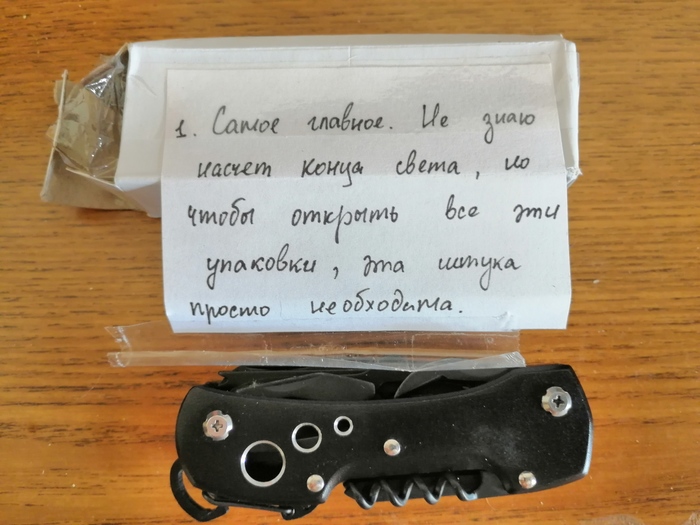 1. Самое главное. Не знаю
насчет конца света, но
чтобы открыть все эти
упаковки, эта штука
просто необходима.